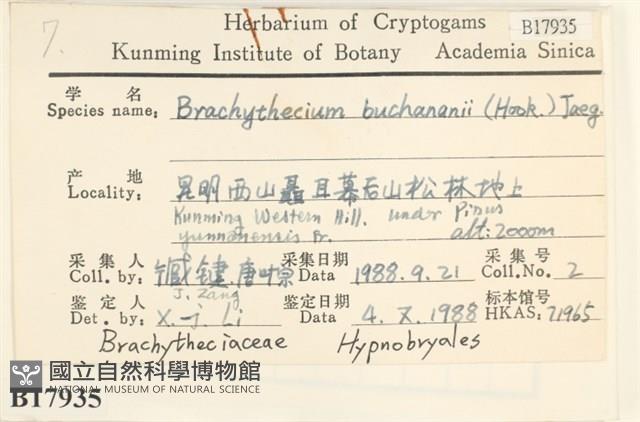 7.
Herbarium of Cryptogams
B17935
Kunming Institute of Botany Academia Sinica
学名
Species name: Brachythecium buchananii (Hook.) Jaeg.
产地
Locality: 昆明西山聶耳幕后山松林地上
Kunming Western Hill. under Pinus
yunnanensis Fr. alt: 2000m
采集人 采集日期 采集号
Coll. by: 臧键.唐叶 Data 1988.9.21 Coll.No. 2
J. Zang
鉴定人 鉴定日期 标本馆号
Det. by: X.-J. Li Data 4. X. 1988 HKAS: 71965
Brachytheciaceae Hypnobryales
國立自然科學博物館
NATIONAL MUSEUM OF NATURAL SCIENCE
B17935